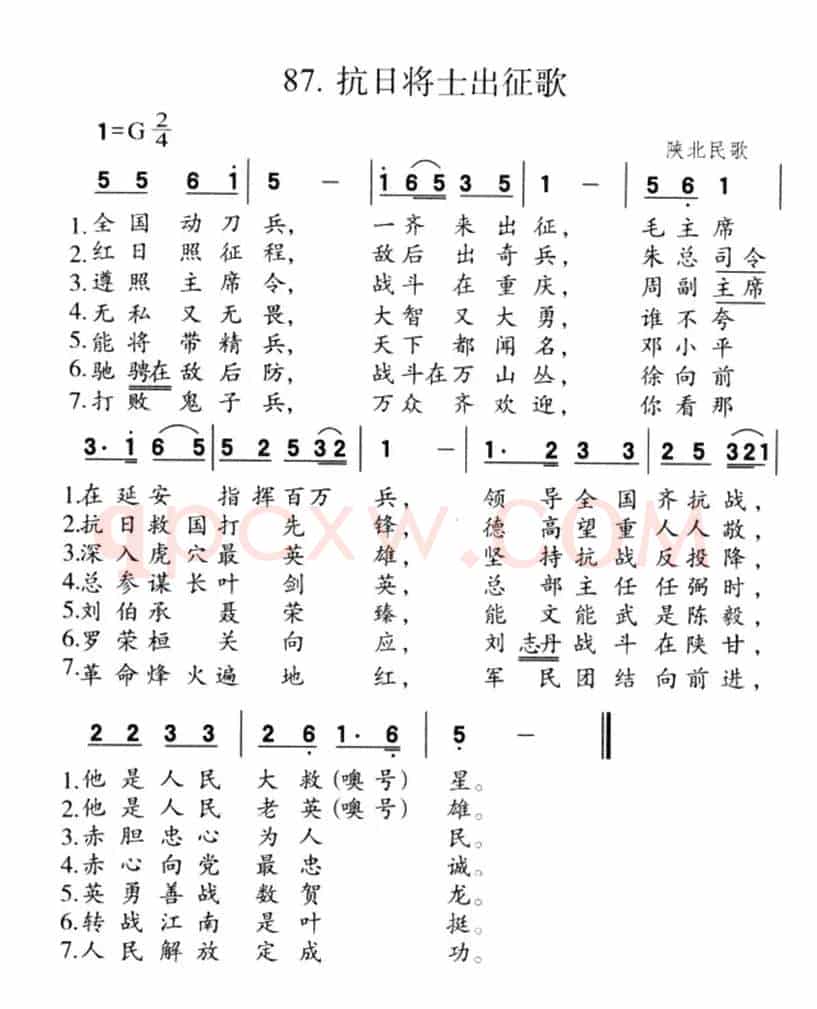 87. 抗日将士出征歌
1=G 2/4
陕北民歌
5 5 6 i | 5 － | i 6 5 3 5 | 1 － | 5 6 1
1.全国动刀兵， 一齐来出征， 毛主席
2.红日照征程， 敌后出奇兵， 朱总司令
3.遵照主席令， 战斗在重庆， 周副主席
4.无私又无畏， 大智又大勇， 谁不夸
5.能将带精兵， 天下都闻名， 邓小平
6.驰骋在敌后防， 战斗在万山丛， 徐向前
7.打败鬼子兵， 万众齐欢迎， 你看那
3· i 6 5 | 5 2 5 3 2 | 1 － | 1· 2 3 3 | 2 5 3 2 1 |
1.在延安指挥百万兵， 领导全国齐抗战，
2.抗日救国打先锋， 德高望重人人敬，
3.深入虎穴最英雄， 坚持抗战反投降，
4.总参谋长叶剑英， 总部主任任弼时，
5.刘伯承聂荣臻， 能文能武是陈毅，
6.罗荣桓关向应， 刘志丹战斗在陕甘，
7.革命烽火遍地红， 军民团结向前进，
qpcxw.com
2 2 3 3 | 2 6 1· 6 | 5 － ‖
1.他是人民大救(噢号)星。
2.他是人民老英(噢号)雄。
3.赤胆忠心为人民。
4.赤心向党最忠诚。
5.英勇善战数贺龙。
6.转战江南是叶挺。
7.人民解放定成功。